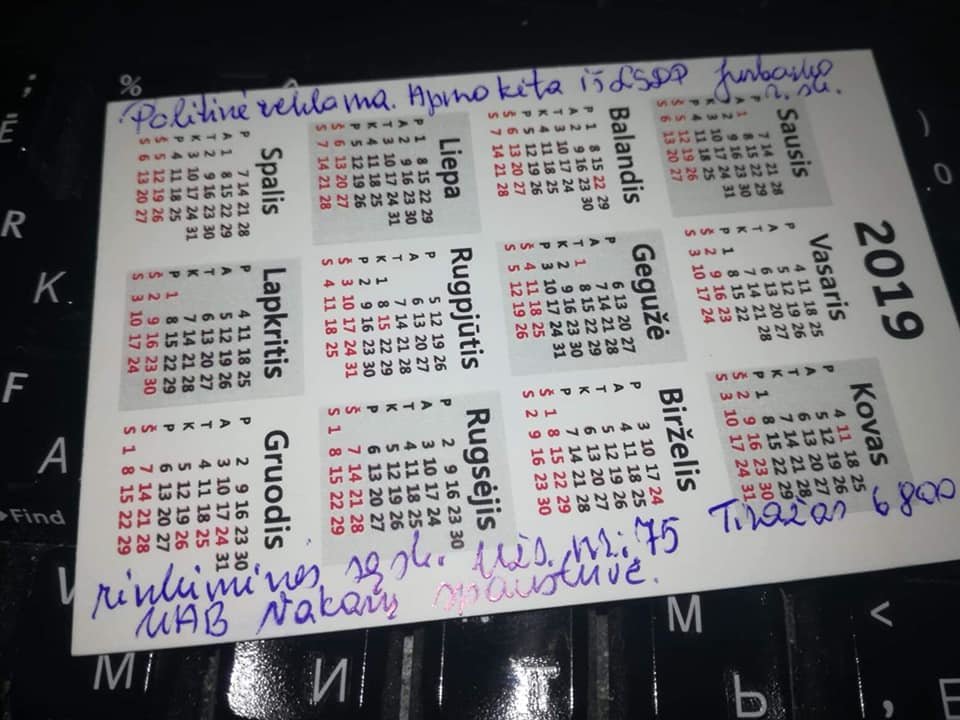 Politinė reklama. Apmokėta iš LSDP Jurbarko
r. sk.
2019
Sausis
P 7 14 21 28
A 1 8 15 22 29
T 2 9 16 23 30
K 3 10 17 24 31
P 4 11 18 25
Š 5 12 19 26
S 6 13 20 27
Vasaris
P 4 11 18 25
A 5 12 19 26
T 6 13 20 27
K 7 14 21 28
P 1 8 15 22
Š 2 9 16 23
S 3 10 17 24
Kovas
P 4 11 18 25
A 5 12 19 26
T 6 13 20 27
K 7 14 21 28
P 1 8 15 22 29
Š 2 9 16 23 30
S 3 10 17 24 31
Balandis
P 1 8 15 22 29
A 2 9 16 23 30
T 3 10 17 24
K 4 11 18 25
P 5 12 19 26
Š 6 13 20 27
S 7 14 21 28
Gegužė
P 6 13 20 27
A 7 14 21 28
T 1 8 15 22 29
K 2 9 16 23 30
P 3 10 17 24 31
Š 4 11 18 25
S 5 12 19 26
Birželis
P 3 10 17 24
A 4 11 18 25
T 5 12 19 26
K 6 13 20 27
P 7 14 21 28
Š 1 8 15 22 29
S 2 9 16 23 30
Liepa
P 1 8 15 22 29
A 2 9 16 23 30
T 3 10 17 24 31
K 4 11 18 25
P 5 12 19 26
Š 6 13 20 27
S 7 14 21 28
Rugpjūtis
P 5 12 19 26
A 6 13 20 27
T 7 14 21 28
K 1 8 15 22 29
P 2 9 16 23 30
Š 3 10 17 24 31
S 4 11 18 25
Rugsėjis
P 2 9 16 23 30
A 3 10 17 24
T 4 11 18 25
K 5 12 19 26
P 6 13 20 27
Š 7 14 21 28
S 1 8 15 22 29
Spalis
P 7 14 21 28
A 1 8 15 22 29
T 2 9 16 23 30
K 3 10 17 24 31
P 4 11 18 25
Š 5 12 19 26
S 6 13 20 27
Lapkritis
P 4 11 18 25
A 5 12 19 26
T 6 13 20 27
K 7 14 21 28
P 1 8 15 22 29
Š 2 9 16 23 30
S 3 10 17 24
Gruodis
P 2 9 16 23 30
A 3 10 17 24 31
T 4 11 18 25
K 5 12 19 26
P 6 13 20 27
Š 7 14 21 28
S 1 8 15 22 29
rinkiminės sąsk. Užs. nr.: 75 Tiražas 6800
UAB Vakarų spaustuvė.
%
;
Ё
R
К
F
А
Find
V
М
И
Т
М
Ь
<
,
)
0